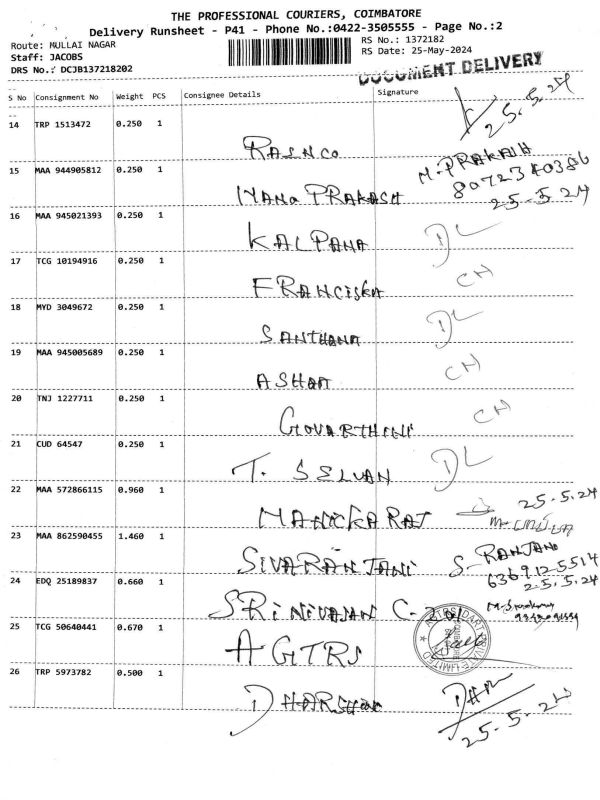 THE PROFESSIONAL COURIERS, COIMBATORE
Delivery Runsheet - P41 - Phone No.:0422-3505555 - Page No.:2
Route: MULLAI NAGAR
RS No.: 1372182
Staff: JACOBS
RS Date: 25-May-2024
DRS No.: DCJB137218202
DOCUMENT DELIVERY
S No Consignment No Weight PCS Consignee Details Signature
14 TRP 1513472 0.250 1
25.5.24
RAINCO
15 MAA 944905812 0.250 1
M. PRAKASH
8072340386
PRAKASH
25-5-24
16 MAA 945021393 0.250 1
KALPANA DL
17 TCG 10194916 0.250 1
FRANCISKA CH
18 MYD 3049672 0.250 1
SANTHANA DL
19 MAA 945005689 0.250 1
ASHAA CH
20 TNJ 1227711 0.250 1
GOVARTHINI CH
21 CUD 64547 0.250 1
T. SELVAN DL
22 MAA 572866115 0.960 1
25.5.24
MANICKARAJ
23 MAA 862590455 1.460 1
SIVARANJANI S-RANJANI
6369125514
25.5.24
24 EDQ 25189837 0.660 1
SRINIVASAN C-301
25 TCG 50640441 0.670 1
AGTRS
26 TRP 5973782 0.500 1
DHARSHINI
25-5-24